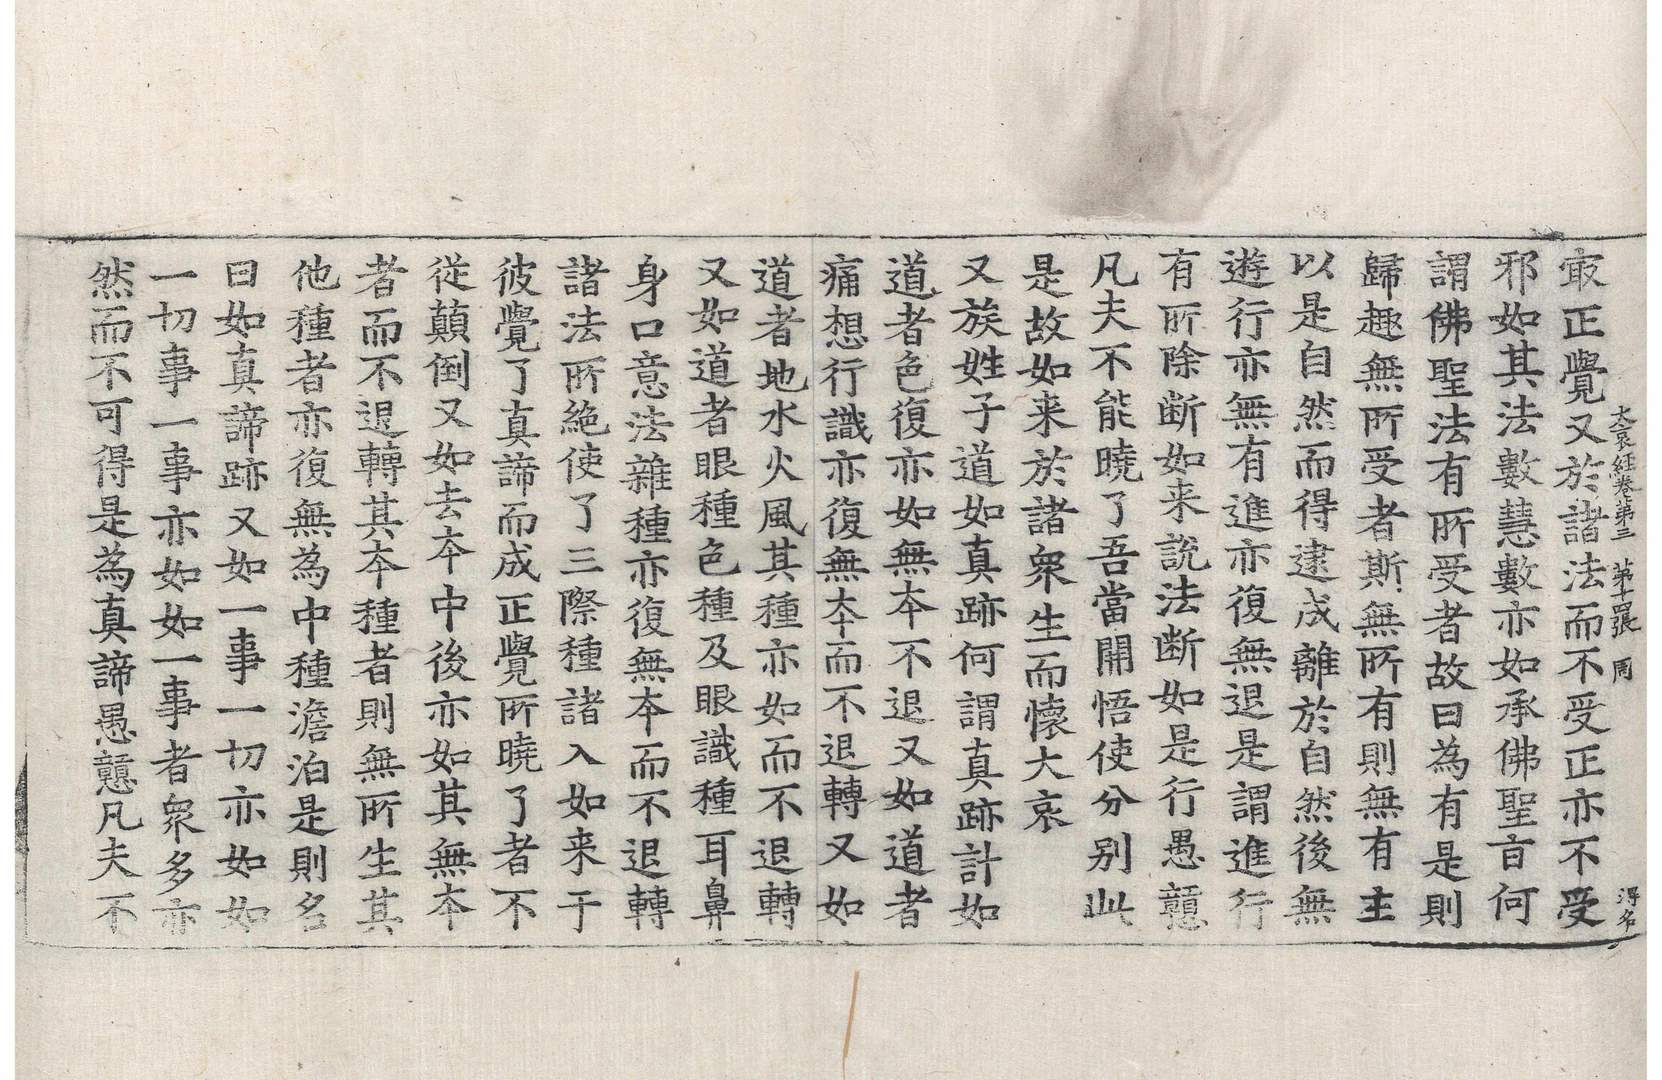 大哀経卷第三　第十四張　周　得名
㝡正覺又於諸法而不受正亦不受
邪如其法數慧數亦如承佛聖旨何
謂佛聖法有所受者故曰為有是則
歸趣無所受者斯無所有則無有主
以是自然而得逮成離於自然後無
遊行亦無有進亦復無退是謂進行
有所除断如来說法断如是行愚戇
凡夫不能曉了吾當開悟使分别此
是故如来於諸衆生而懷大哀
又族姓子道如真跡何謂真跡計如
道者色復亦如無夲不退又如道者
痛想行識亦復無夲而不退轉又如
道者地水火風其種亦如而不退轉
又如道者眼種色種及眼識種耳鼻
身口意法雜種亦復無夲而不退轉
諸法所絕使了三際種諸入如来于
彼覺了真諦而成正覺所曉了者不
從顛倒又如去夲中後亦如其無夲
者而不退轉其夲種者則無所生其
他種者亦復無為中種澹泊是則名
曰如真諦跡又如一事一切亦如如
一切事一事亦如如一事者衆多亦
然而不可得是為真諦愚戇凡夫不